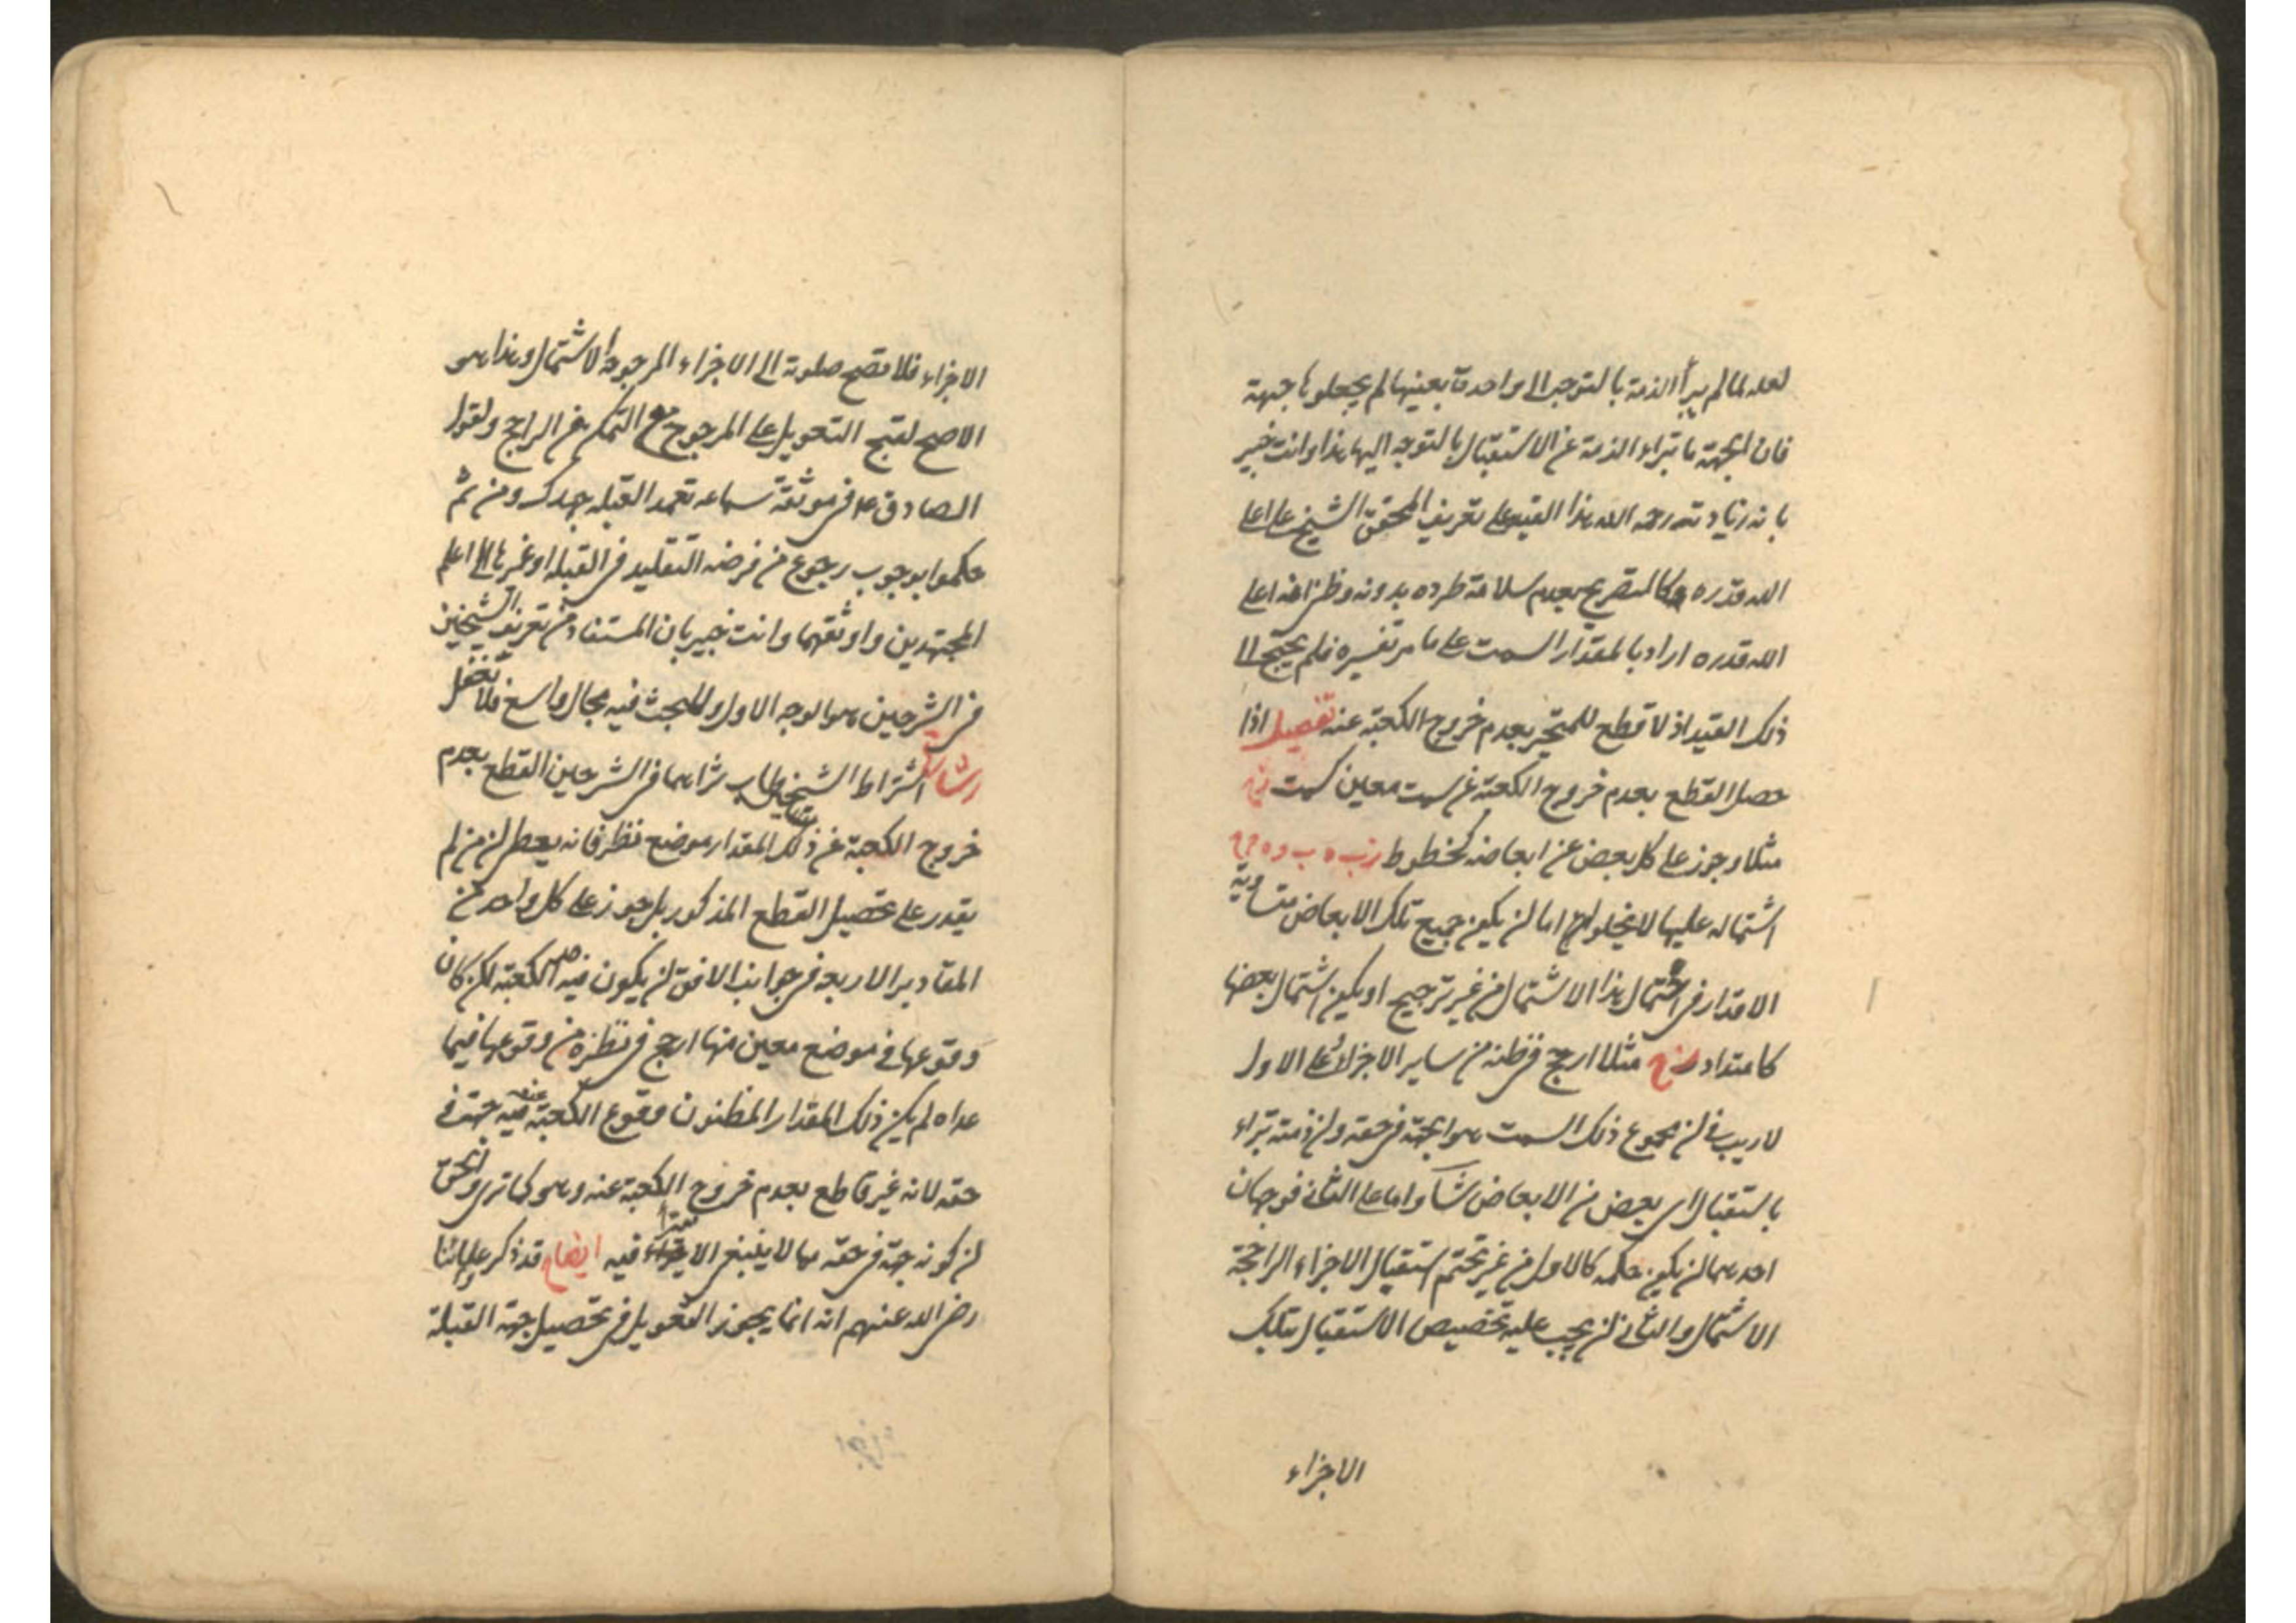 لعله لما لم يبرأ الذمة بالتوجه الى واحدة بعينها لم يجعلوها جهة
فان الجهة ما تبراء الذمة عن الاستقبال بالتوجه اليها هذا وانت خبير
بان زيادته رحمه الله هذا القيد على تعريف المحقق الشيخ على اعلى
الله قدره كالتصريح بعدم سلامة طرده بدونه وظني انه اعلى
الله قدره اراد بالمقدار السمت على ما مر تفسيره فلم يحتج الى
ذلك القيد اذ لا قطع للمتحير بعدم خروج الكعبة عنه تفصيل اذا
حصل القطع بعدم خروج الكعبة عن سمت معين كسمت
مثلا وجوز على كل بعض عن ابعاضه كخطوط
اشتماله عليها لا يخلو اما ان يكون جميع تلك الابعاض متساوية
الاقدار في احتمال هذا الاشتمال من غير ترجيح او يكون اشتمال بعضها
كامتداد مثلا ارجح في ظنه من ساير الاجزاء فعلى الاول
لا ريب في ان مجموع ذلك السمت هو الجهة في حقه وان ذمته تبراء
باستقبال اى بعض من الابعاض شاء واما على الثاني فوجهان
احدهما ان يكون حكمه كالاول من غير تحتم استقبال الاجزاء الراجحة
الاشتمال والثاني ان يجب عليه تخصيص الاستقبال بتلك
الاجزاء
الاجزاء فلا تصح صلوته الى الاجزاء المرجوحة الاشتمال وهذا هو
الاصح لقبح التعويل على المرجوح مع التمكن من الراجح ولقول
الصادق ع في موثقة سماعه تعمد القبله جهدك ومن ثم
حكموا بوجوب رجوع من فرضه التقليد في القبله او غيرها الى اعلم
المجتهدين واوثقهما وانت خبير بان المستفاد من تعريف الشيخين
في الشرحين هو الوجه الاول وللبحث فيه مجال واسع فلا تغفل
اشتراط الشيخين طاب ثراهما في الشرحين القطع بعدم
خروج الكعبة عن ذلك المقدار موضع نظر فانه يعطى ان من لم
يقدر على تحصيل القطع المذكور بل جوز على كل واحد من
المقادير الاربعه في جوانب الافق ان يكون فيه الكعبة لكن كان
وقوعها في موضع معين منها ارجح في نظره من وقوعها فيما
عداه لم يكن ذلك المقدار المظنون وقوع الكعبة فيه جهة في
حقه لانه غير قاطع بعدم خروج الكعبة عنه وهو كما ترى والحق
ان كونه جهة في حقه مما لا ينبغي الامتراء فيه ايضاح قد ذكر علماؤنا
رضي الله عنهم انه انما يجوز التعويل في تحصيل جهة القبلة